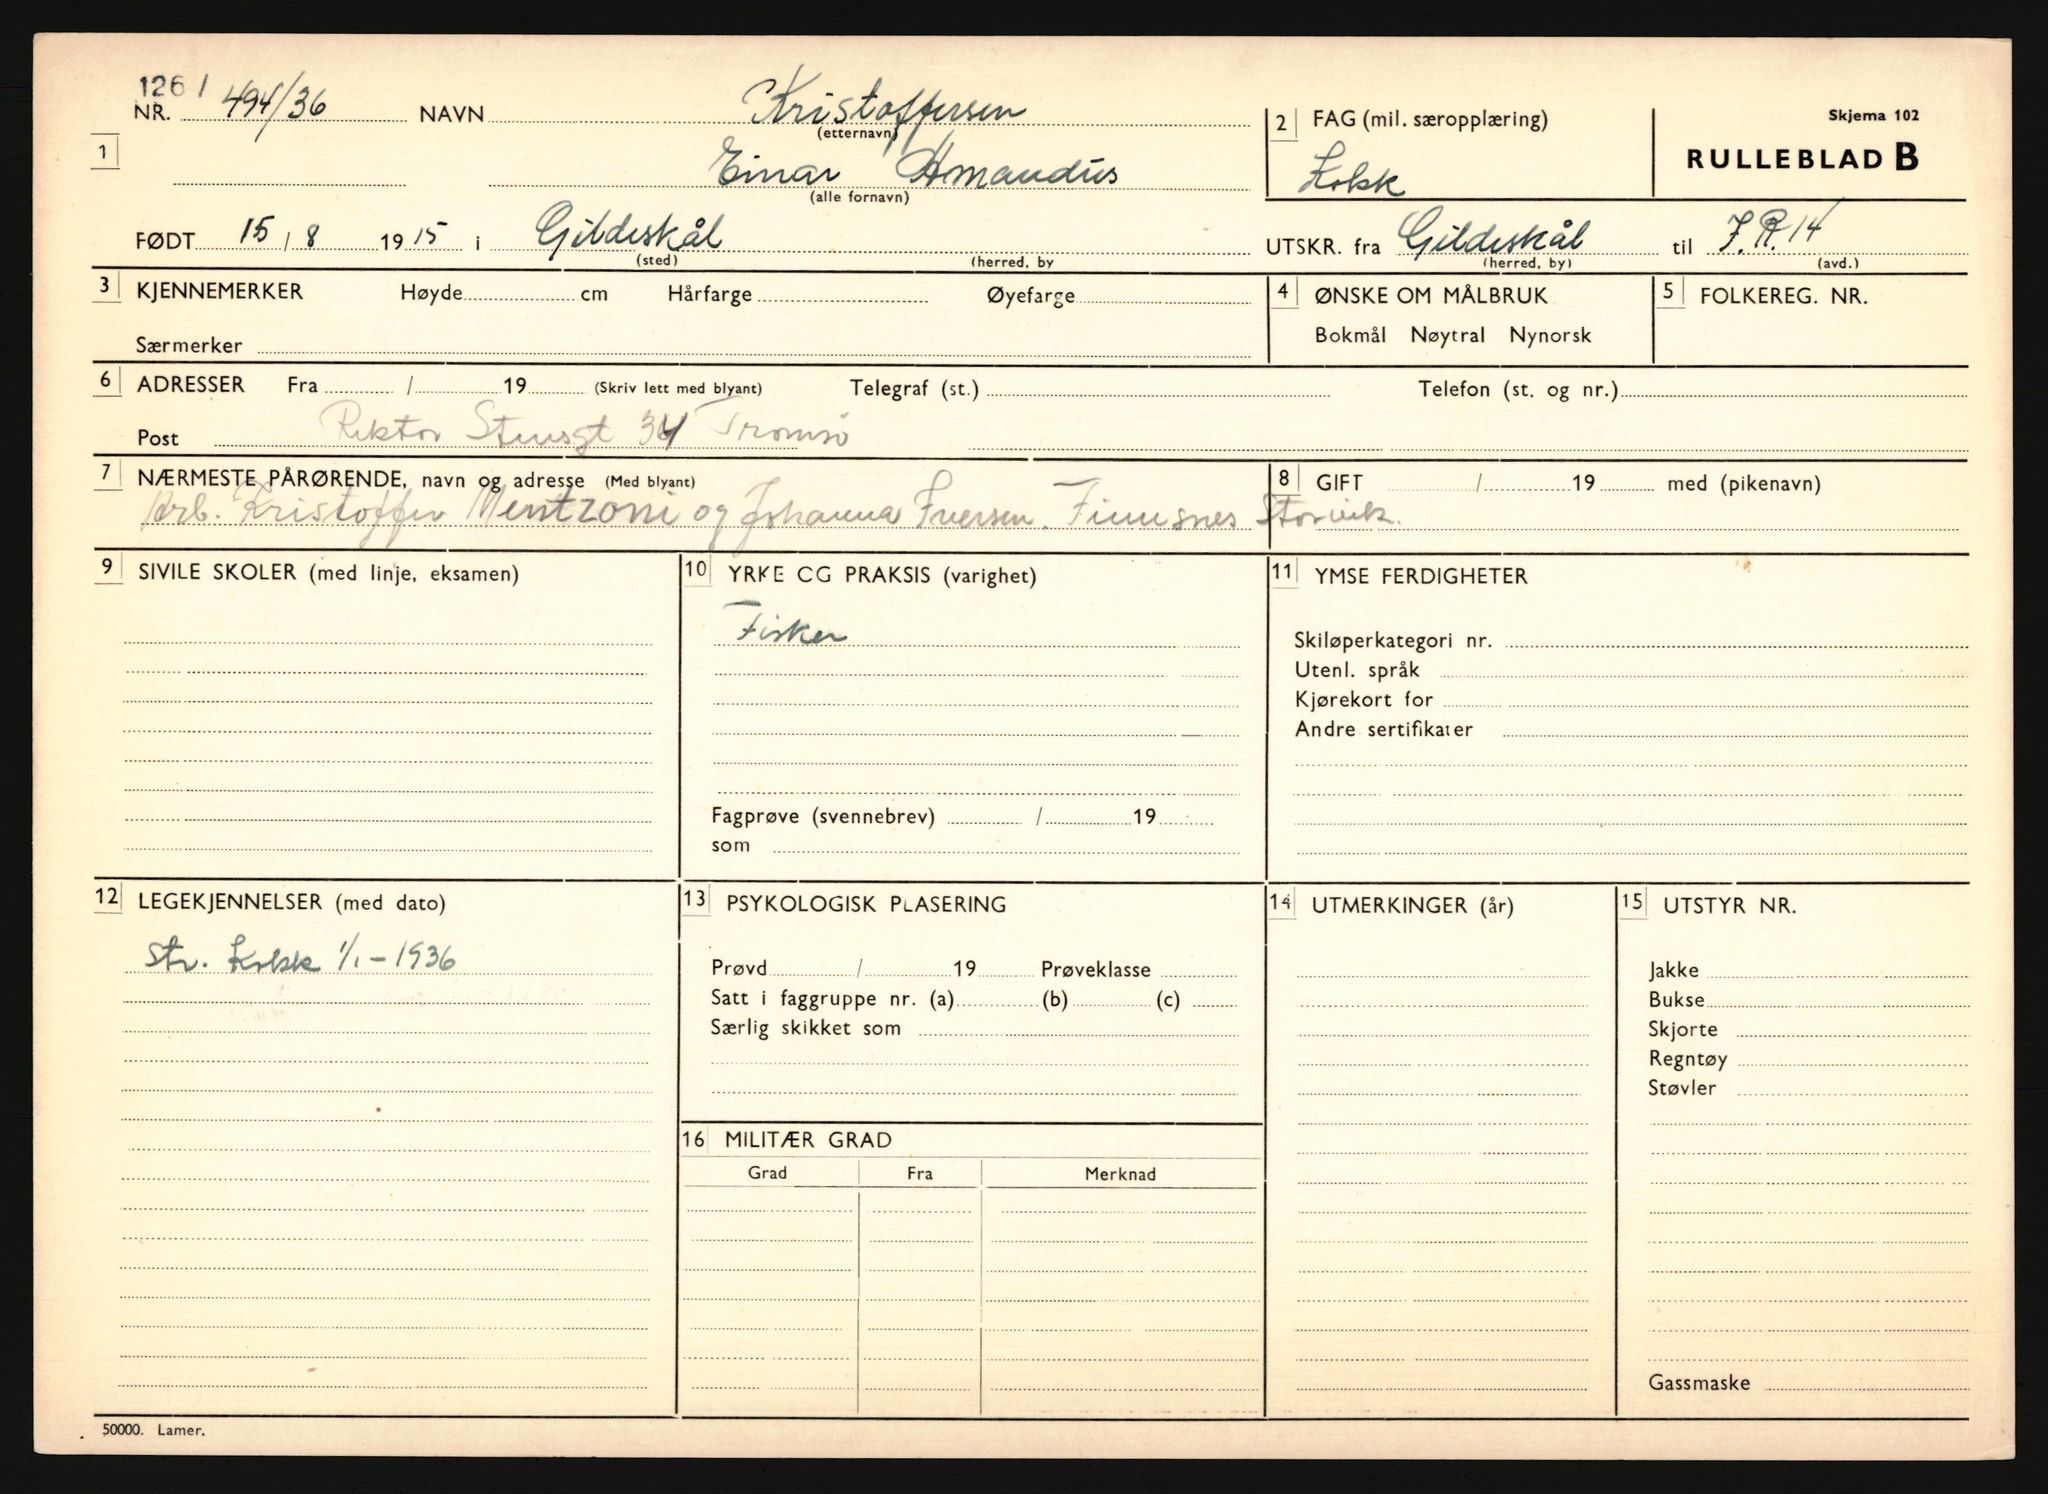 126 /
NR. 494/36 NAVN Kristoffersen
(etternavn)
1
Einar Amandus
(alle fornavn)
2 FAG (mil. særopplæring)
Kobsk
Skjema 102
RULLEBLAD B
FØDT 15 / 8 19 15 i Gildeskål
(sted) (herred, by
UTSKR. fra Gildeskål til J.R. 14
(herred, by) (avd.)
3 KJENNEMERKER Høyde cm Hårfarge Øyefarge
Særmerker
4 ØNSKE OM MÅLBRUK
Bokmål Nøytral Nynorsk
5 FOLKEREG. NR.
6 ADRESSER Fra / 19 (Skriv lett med blyant) Telegraf (st.) Telefon (st. og nr.)
Post Rektor Stensgt 34 Tromsø
7 NÆRMESTE PÅRØRENDE, navn og adresse (Med blyant)
8 GIFT / 19 med (pikenavn)
Arb. Kristoffer Mentzoni og Johanna Iversen. Finnsnes Storvik.
9 SIVILE SKOLER (med linje, eksamen)
10 YRKE CG PRAKSIS (varighet)
Fisker
Fagprøve (svennebrev) / 19
som
11 YMSE FERDIGHETER
Skiløperkategori nr.
Utenl. språk
Kjørekort for
Andre sertifikater
12 LEGEKJENNELSER (med dato)
Str. Kobsk 1/1 - 1936
13 PSYKOLOGISK PLASERING
Prøvd / 19 Prøveklasse
Satt i faggruppe nr. (a) (b) (c)
Særlig skikket som
14 UTMERKINGER (år)
15 UTSTYR NR.
Jakke
Bukse
Skjorte
Regntøy
Støvler
Gassmaske
16 MILITÆR GRAD
Grad Fra Merknad
50000. Lamer.